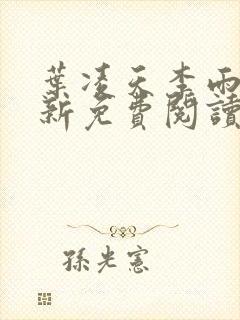 葉凌天李雨
新免費閱讀
孫光憲